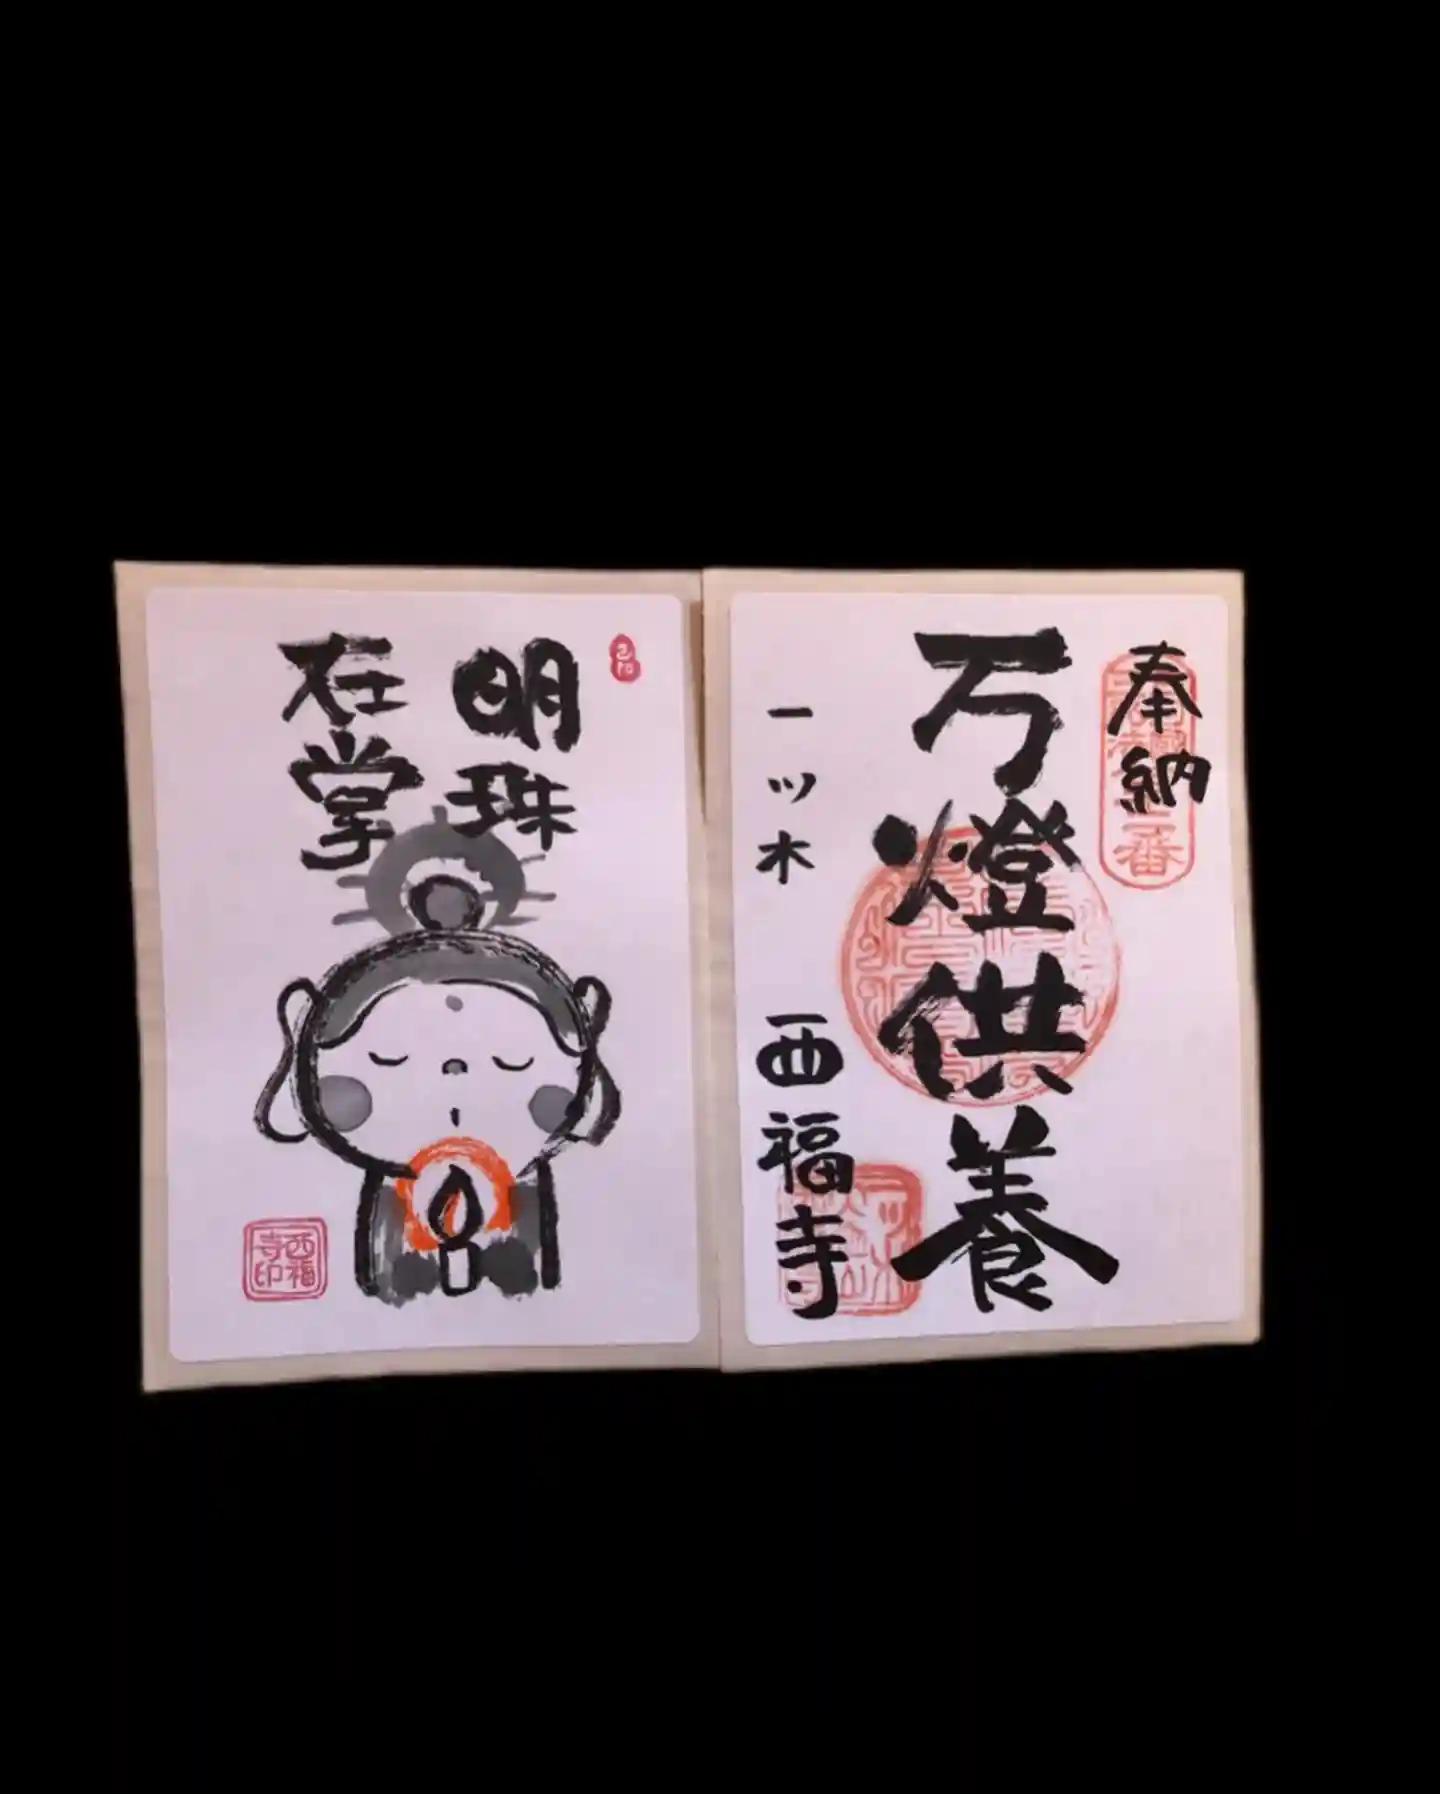 奉納
万燈供養
一ツ木
西福寺
明珠
在掌
西福
寺印